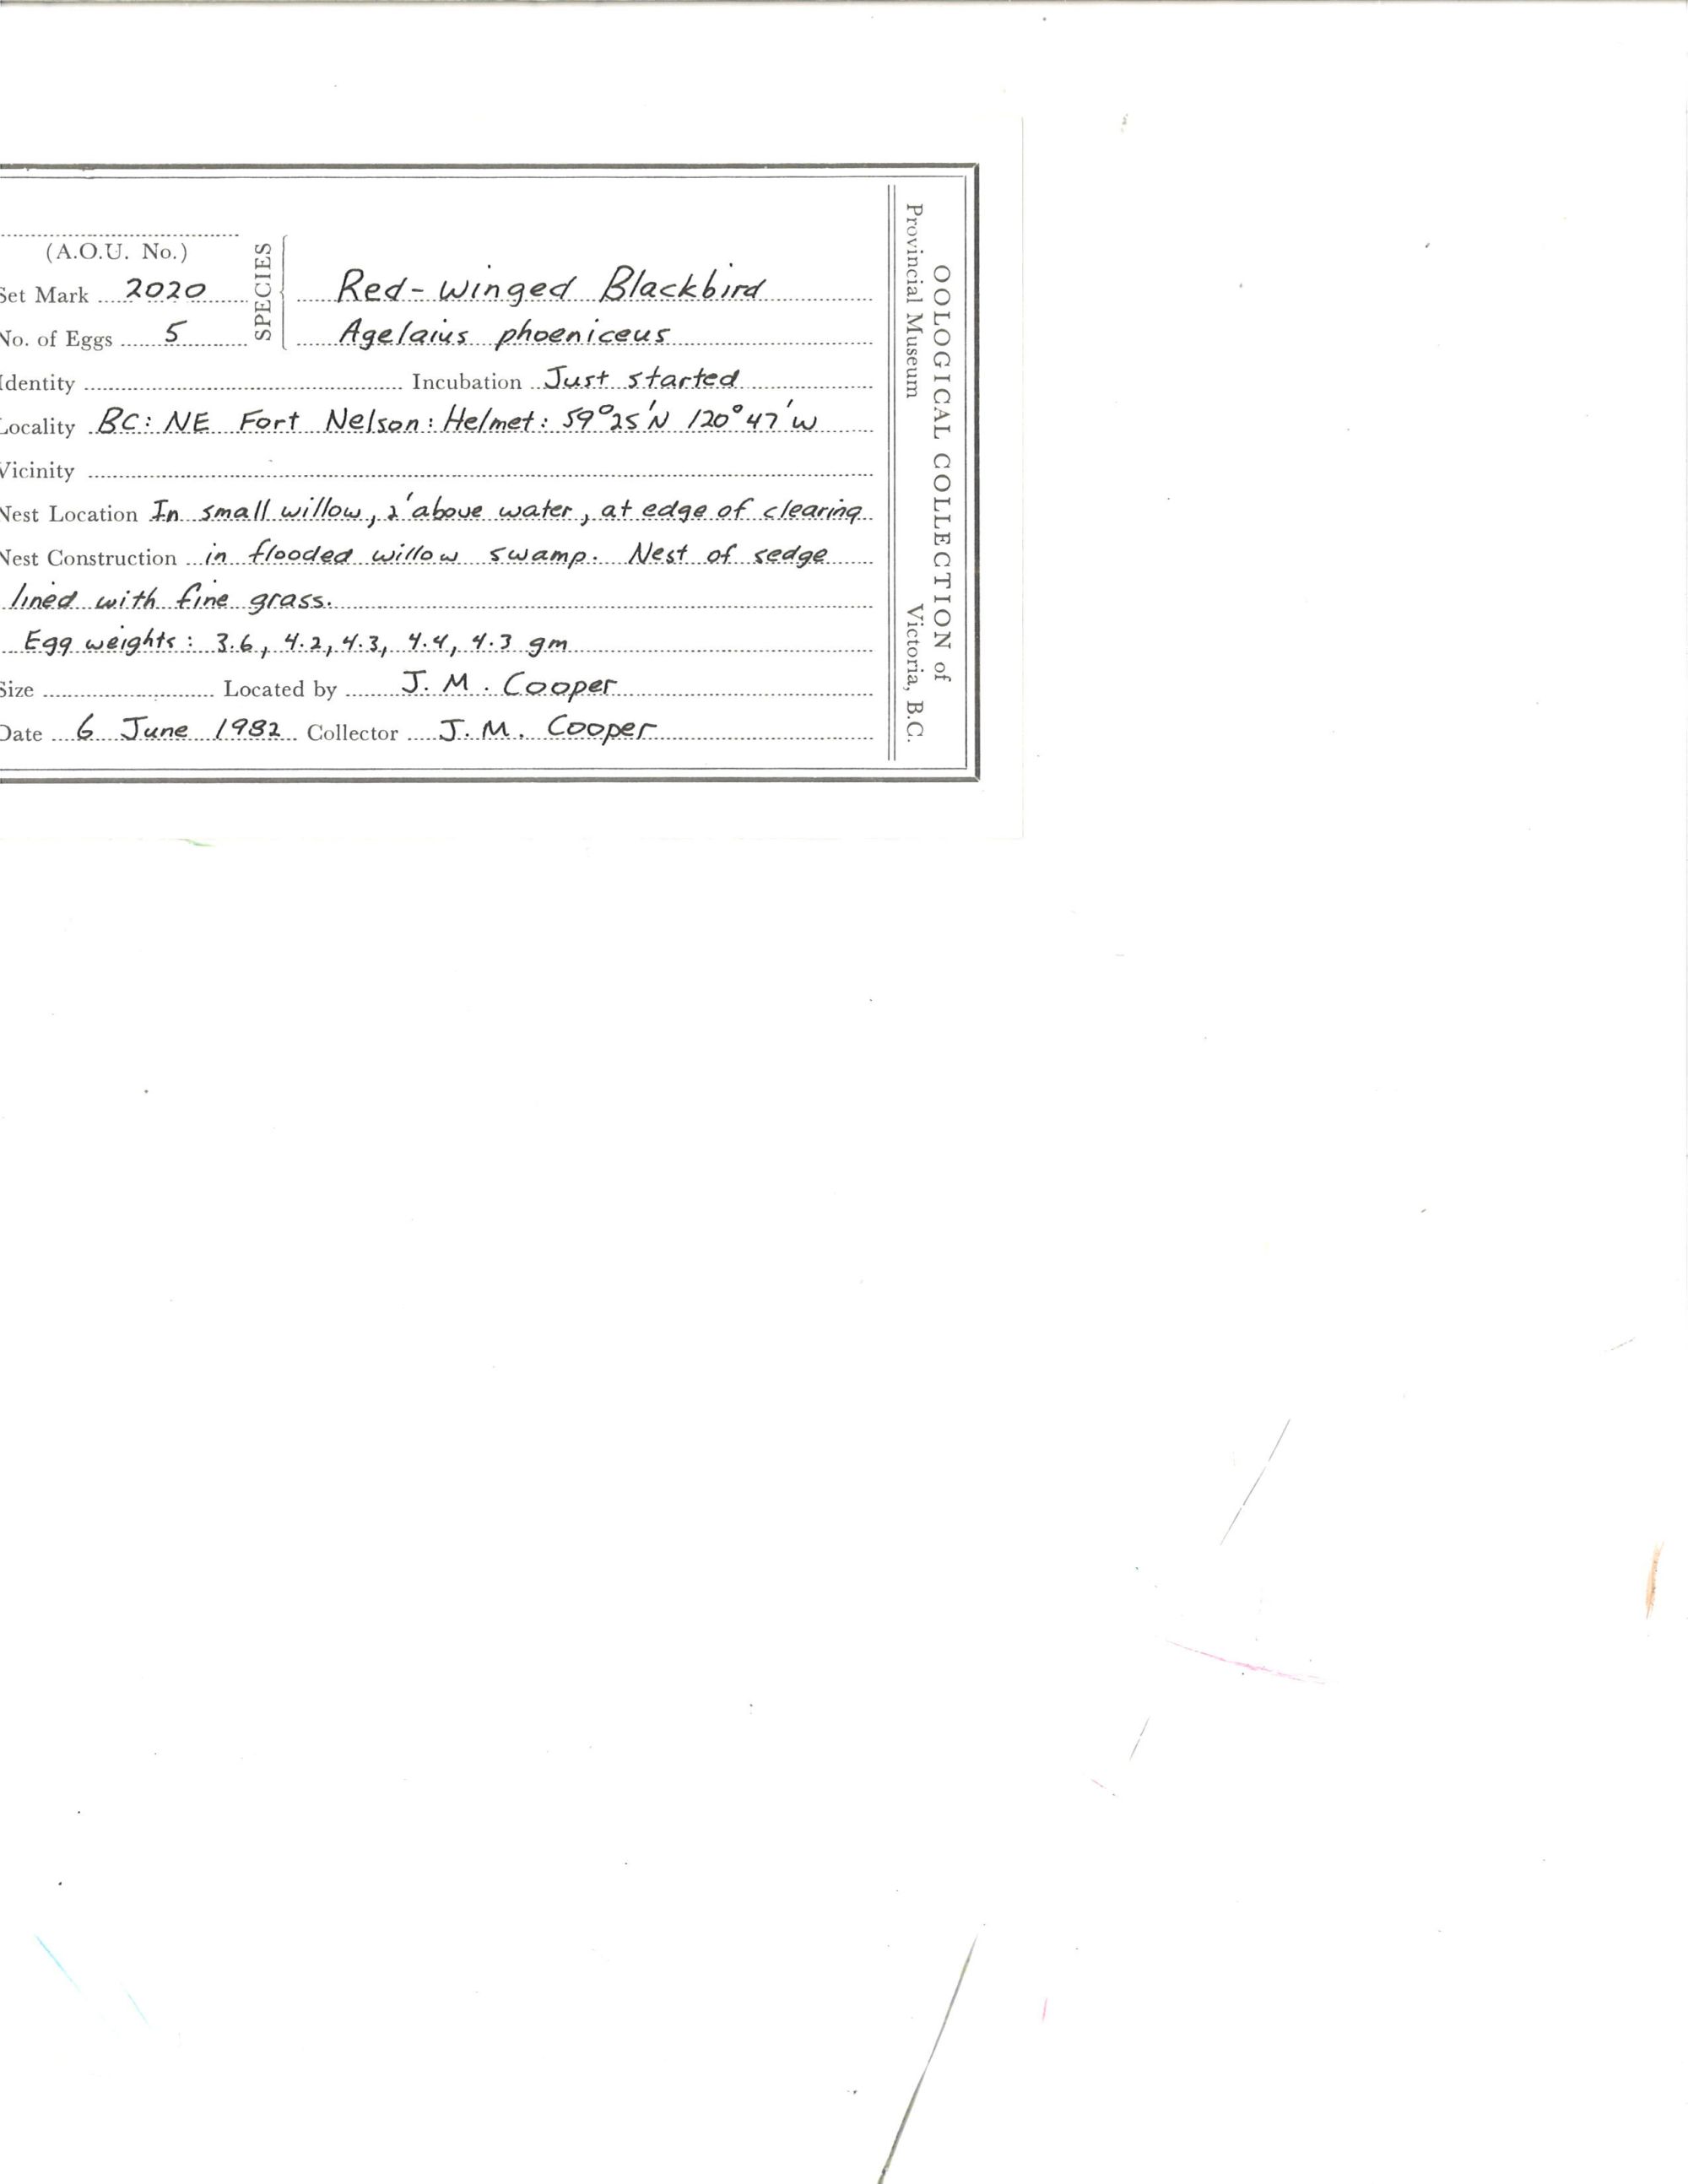 (A.O.U. No.)
Set Mark 2020
No. of Eggs 5
SPECIES
Red-winged Blackbird
Agelaius phoeniceus
Identity Incubation Just started
Locality BC: NE Fort Nelson: Helmet: 59°25'N 120°47'W
Vicinity
Nest Location In small willow, 2' above water, at edge of clearing
Nest Construction in flooded willow swamp. Nest of sedge
lined with fine grass.
Egg weights: 3.6, 4.2, 4.3, 4.4, 4.3 gm
Size Located by J. M. Cooper
Date 6 June 1982 Collector J. M. Cooper
OOLOGICAL COLLECTION of
Provincial Museum Victoria, B.C.